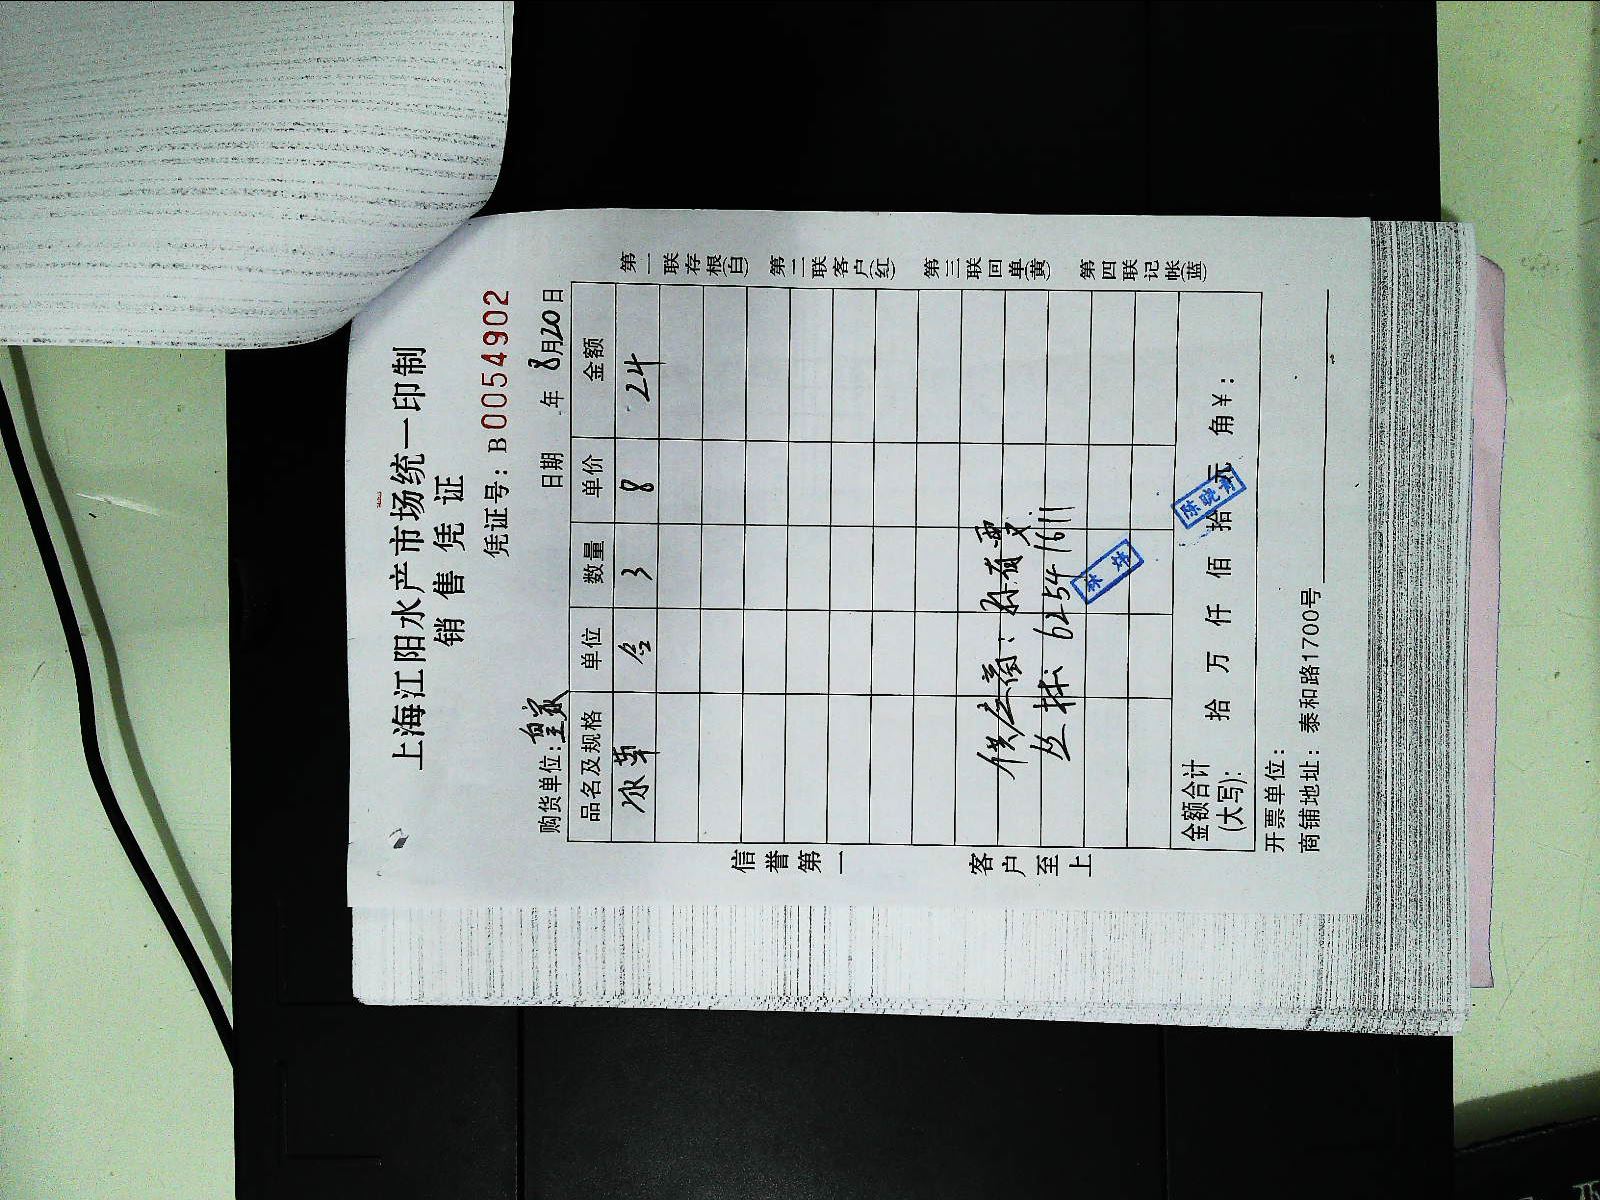 上海江阳水产市场统一印制
销售凭证
凭证号：B0054902
购货单位： 日期 年 8月20日
品名及规格 单位 数量 单价 金额
冰草 3 8 24
供应商：
丛林 62541611
金额合计(大写)： 拾 万 仟 佰 拾 元 角￥：
开票单位：
商铺地址：泰和路1700号
信誉第一 客户至上
第一联存根(白) 第二联客户(红) 第三联回单(黄) 第四联记帐(蓝)
陈晓青